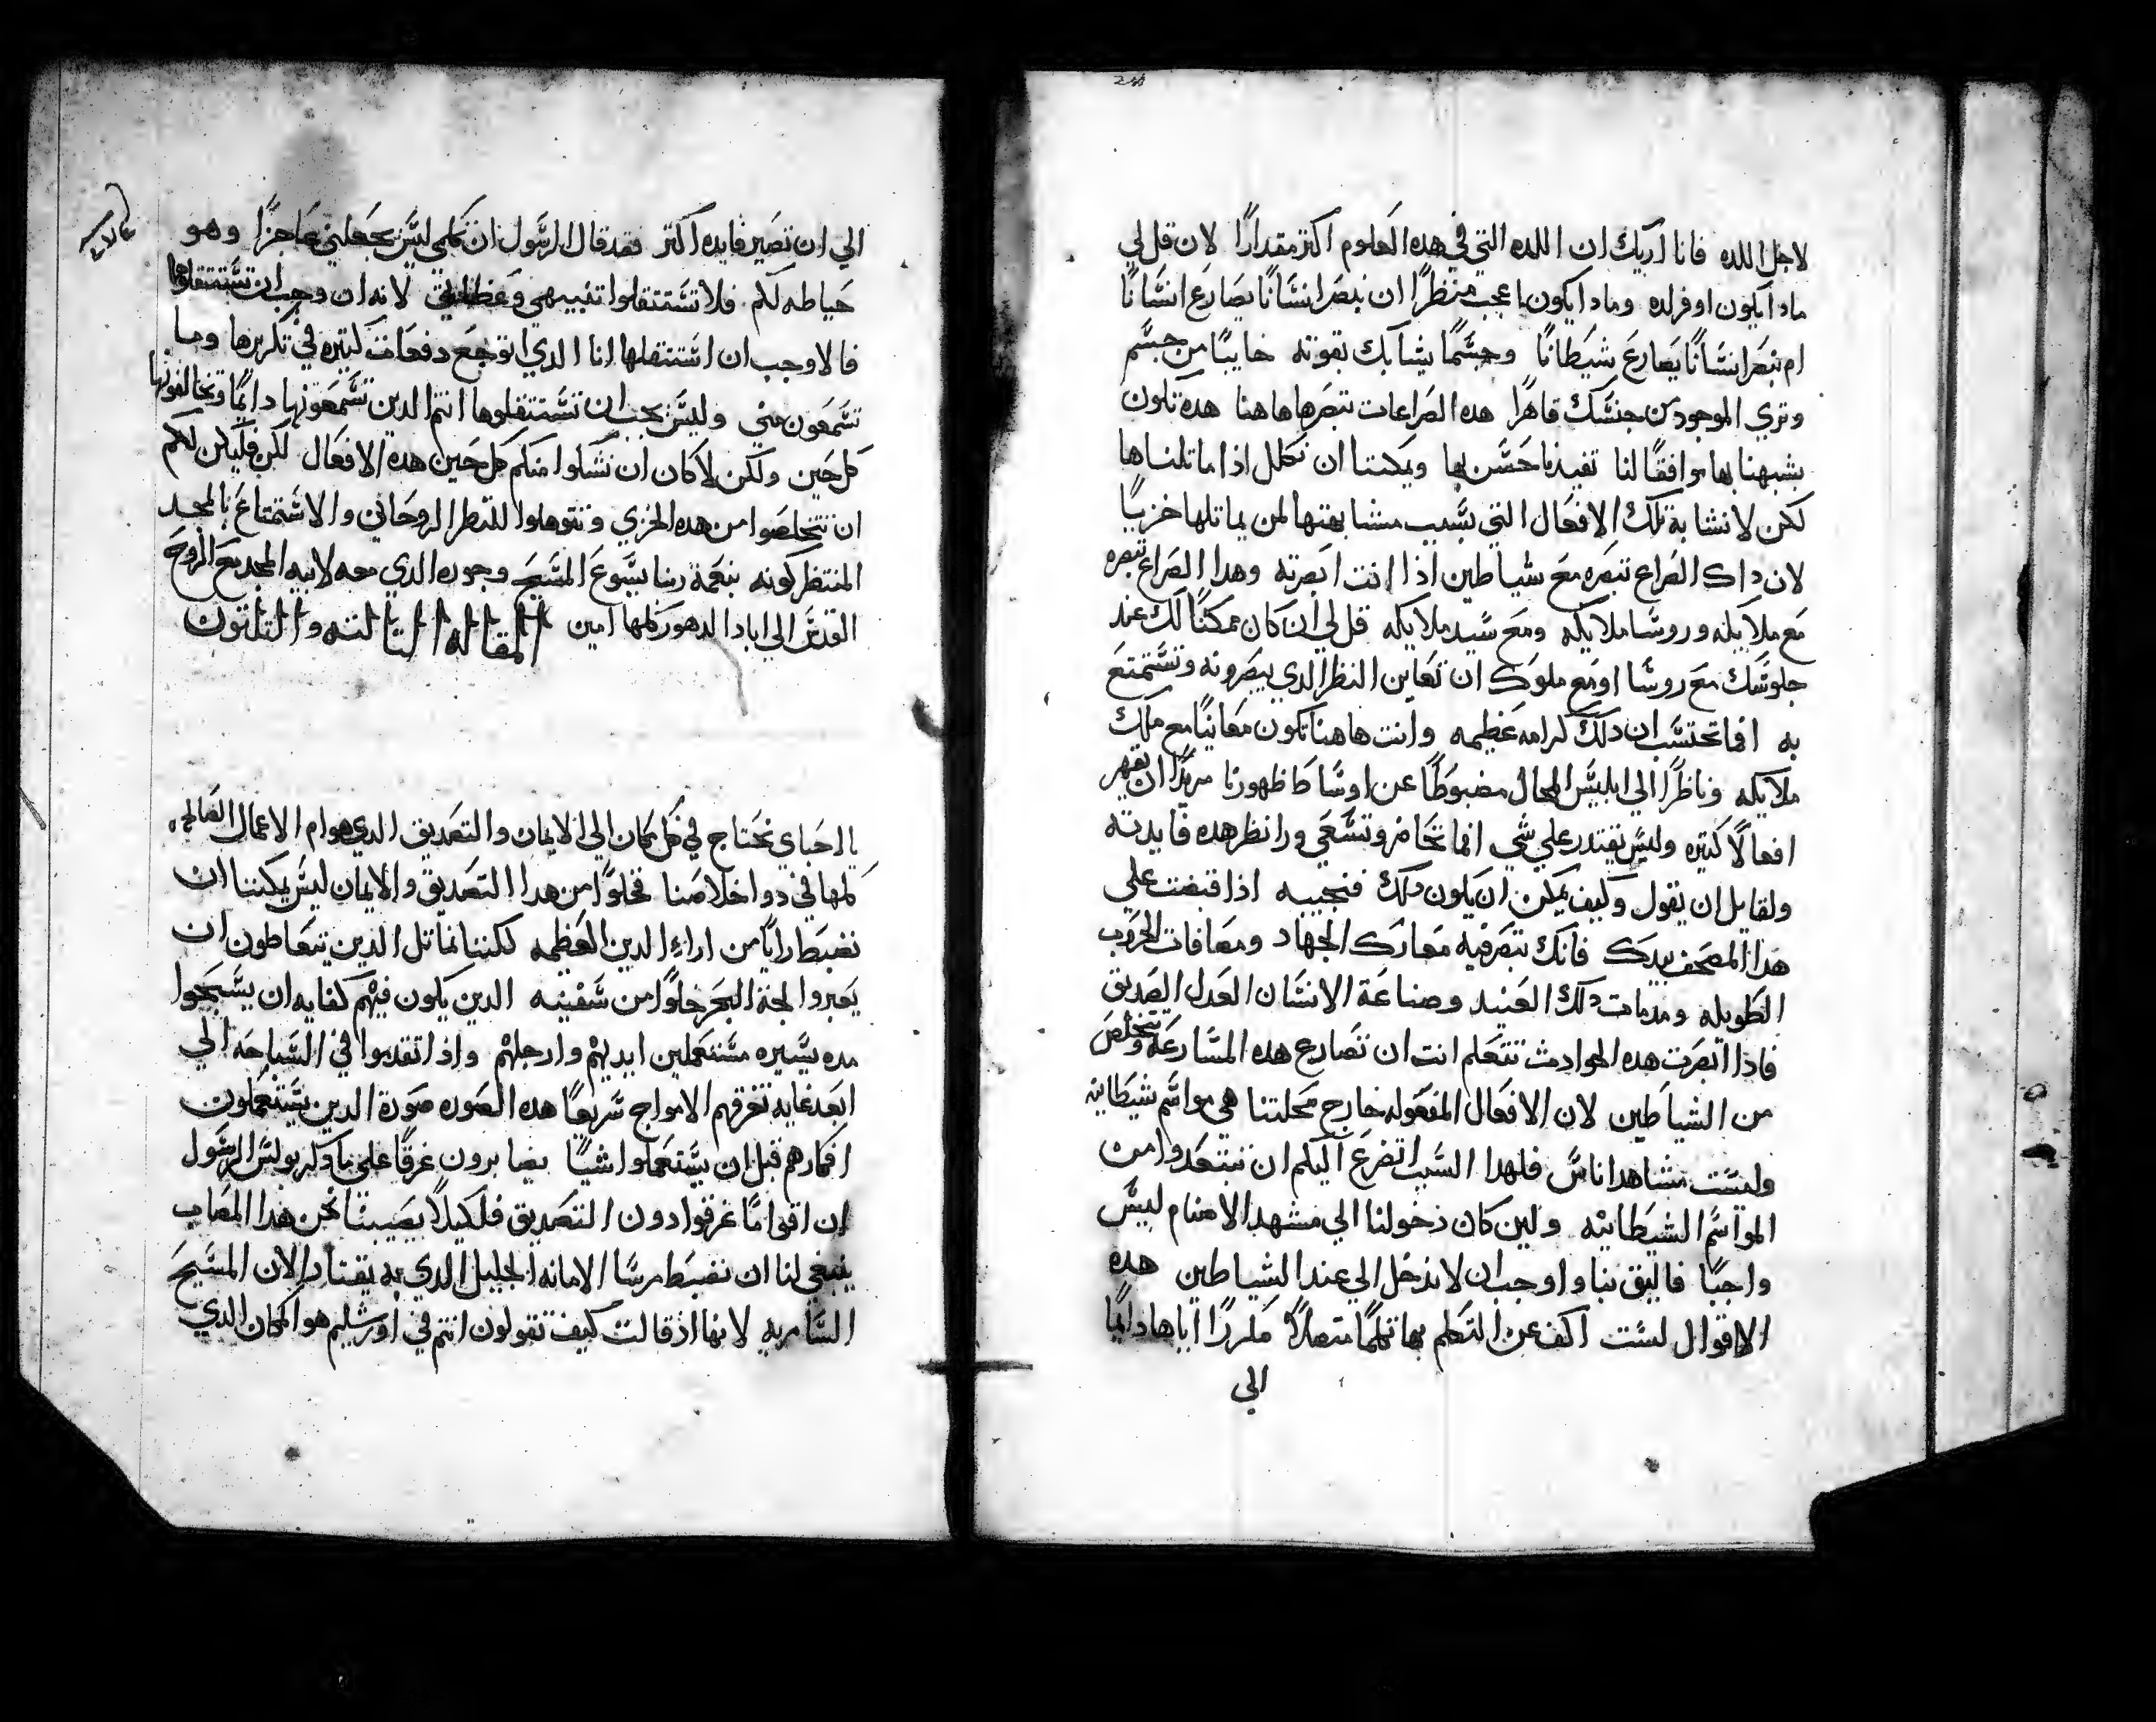 لاجل اللده فانا اريك ان اللده التي في هده العلوم اكتر مقدارًا لان قل لي
مادا يكون اوفر لده ومادا يكون اعجب منظرًا ان نبصر انسَانًا يصَارع انسَانًا
ام نبصر انسَانًا يصَارع شيطَانًا وجسَمًا يشابك بقوته خايبًا من جسَم
وتري الموجود من جنسَك قاهرًا هده الصراعات نتبصرها هاهنا هده تكون
بشبهنا بها موافقًا لنا تفيدنا حسَن بها ويمكننا ان نكلل اذا ماتلناها
لكن لا نشابه تلك الافعال التي بسَبب مشابهتها لمن يماتلها خزيًا
لان داك الصراع تبصره مع شياطين اذا انت ابصرته وهدا الصراع تبصره
مع ملايكه وروسَا ملايكه ومع سَيد ملايكه قل لي ان كان ممكنًا لك عند
جلوسَك مع روسَا او مع ملوك ان تعاين النظر الدي يبصرونه وتسَتمتع
به افما تحتسَب ان دلك كرامه عظيمه وانت هاهنا تكون معاينًا مع ملك
ملايكه وناظرًا الي ابليسَ المحال مضبوطًا عن اوسَاط ظهورنا مريدًا ان يقهر
افعالًا كتيره وليسَ يقتدر علي شي افما تحاضر وتسَعي ورا نظر هده فايدته
ولقايل ان يقول وكيف يمكن ان يكون دلك فنجيبه اذا قبضت علي
هدا المصحف بيدك فانك تبصر فيه معارك الجهاد ومصافات الحروب
الطويله ومدمات دلك العنيد وصناعة الانسَان العدل الصديق
فاذا ابصرت هده الحوادث تتعلم انت ان تصارع هده المسَارعة وتتخلص
من الشياطين لان الافعال المفعوله خارج محلتنا هي مواسَم شيطانيه
وليسَت مشاهد اناسَ فلهدا السَبب اتضرع اليكم ان تبتعدوا من
المواسَم الشيطانيه ولين كان دخولنا الي مشهد الاصنام ليسَ
واجبًا فاليق بنا واوجب ان لا ندخل الي عند الشياطين هده
الاقوال لسَت اكف عن التكلم بها تكلمًا متصلًا مكررًا اياها دايمًا
الي
الي ان تصير فايده اكتر فقد قال الرسَول ان تكلمي ليسَ يجعلني عاجزًا وهو
حياطه لكم فلا تسَتتقلوا تنبيهي وعظاتي لانه ان وجب ان تسَتتقلوها
فالاوجب ان اسَتتقلها انا الدي اتوجع دفعات كتيره في تكريرها وما
تسَمعون مني وليسَ يجب ان تسَتتقلوها انتم الدين تسَمعونها دايمًا وتخالفونها
كل حين ولكن لا كان ان نشكوا منكم كل حين هده الافعال لكن فليكن لكم
ان تتخلصوا من هده الخزي وتتوهلوا للنظر الروحاني والاسَتمتاع بالمجد
المنتظر كونه بنعمة ربنا يسَوع المسَيح وجوده الدي معه لابيه المجد مع الروح
القدسَ الي اباد الدهور كلها امين المقاله التالته والتلتون
يا احباي نحتاج في كل مكان الي الايمان والتصديق الدي هو ام الاعمال الصالحه
كلها في دوا خلاصنا فخلوًا من هدا التصديق والايمان ليسَ يمكننا ان
نضبط رايًا من اراء الدين العظيمه لكننا نماتل الدين يتعاطون ان
يعبروا لجة البحر خلوًا من سَفينه الدين يكون فيهم كفايه ان يسَبحوا
مده يسَيره مسَتعملين ايديهم وارجلهم واذا تقدموا في السَباحه الي
ابعد غايه تغرقهم الامواج سَريعًا هده الصوره صورة الدين يسَتعملون
افكارهم قبل ان يسَتعملوا شيًا يضابرون غرقًا علي ما دكر بولسَ الرسَول
ان اقوامًا غرقوا دون التصديق فلكيلا يصيبنا نحن هدا المصاب
ينبغي لنا ان نضبط مرسَا الامانه الجليل الدي به يقتاد الان المسَيح
السَامريه لانها اذ قالت كيف تقولون انتم في اورشليم هو المكان الدي